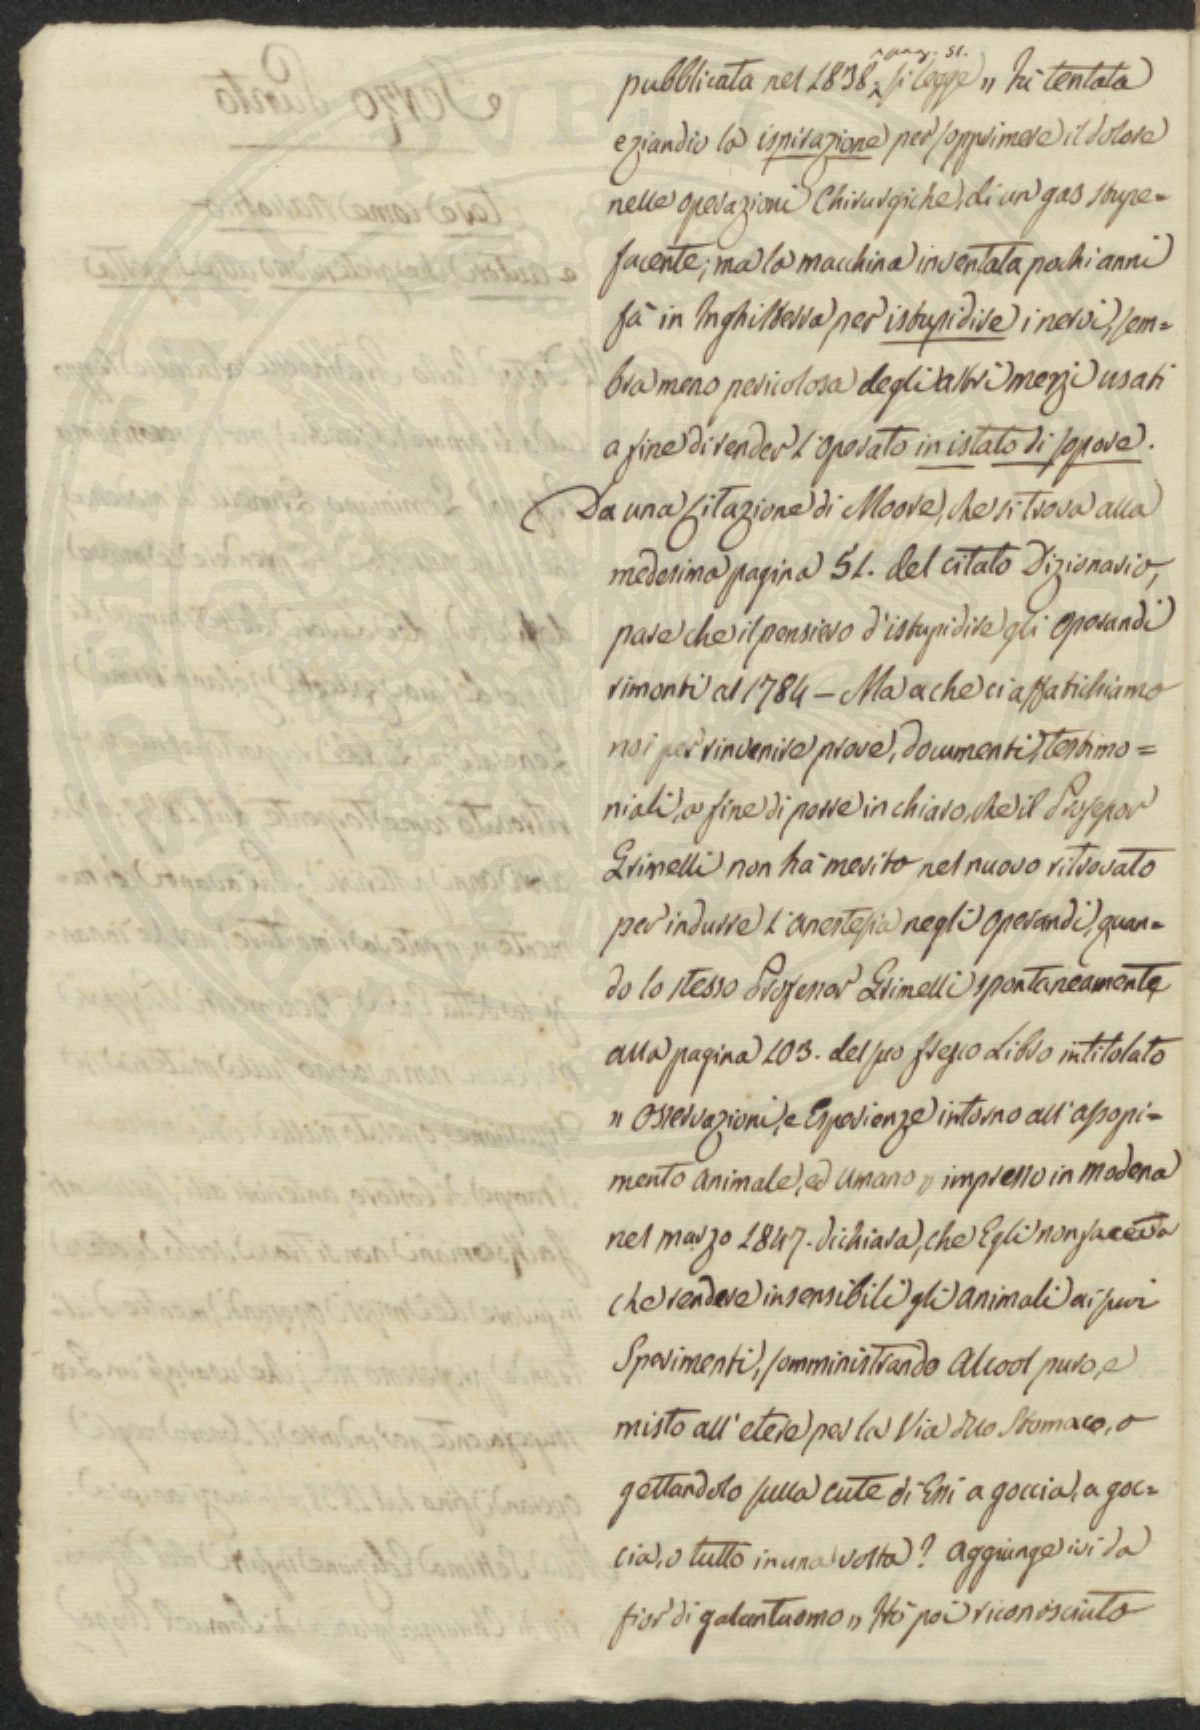 a pag. 51.
pubblicata nel 1838, si legge „ Fu tentata
eziandio la ispirazione per sopprimere il dolore
nelle operazioni Chirurgiche, di un gas stupe=
facente; ma la macchina inventata pochi anni
fà in Inghilterra per istupidire i nervi, sem=
bra meno pericolosa degli altri mezzi usati
a fine di render l'operato in istato di sopore.
Da una Citazione di Moore, che si trova alla
medesima pagina 51. del citato Dizionario,
pare che il pensiero d'istupidire gli operandi
rimonti al 1784 — Ma a che ci affatichiamo
noi per rinvenire prove, documenti, testimo=
niali, a fine di porre in chiaro, che il Professor
Grimelli non hà merito nel nuovo ritrovato
per indurre l'anestesia negli operandi, quan=
do lo stesso Professor Grimelli spontaneamente
alla pagina 103. del suo stesso Libro intitolato
„ Osservazioni, e Esperienze intorno all'assopi=
mento animale, ed umano „ impresso in Modena
nel marzo 1847. dichiara, che Egli non faceva
che rendere insensibili gli animali ai suoi
Sperimenti, somministrando Alcool puro, e
misto all'etere per la Via dello Stomaco, o
gettandolo sulla cute di Essi a goccia, a goc=
cia, o tutto in una volta? Aggiunge ivi da
fior di galantuomo „ Hò poi riconosciuto